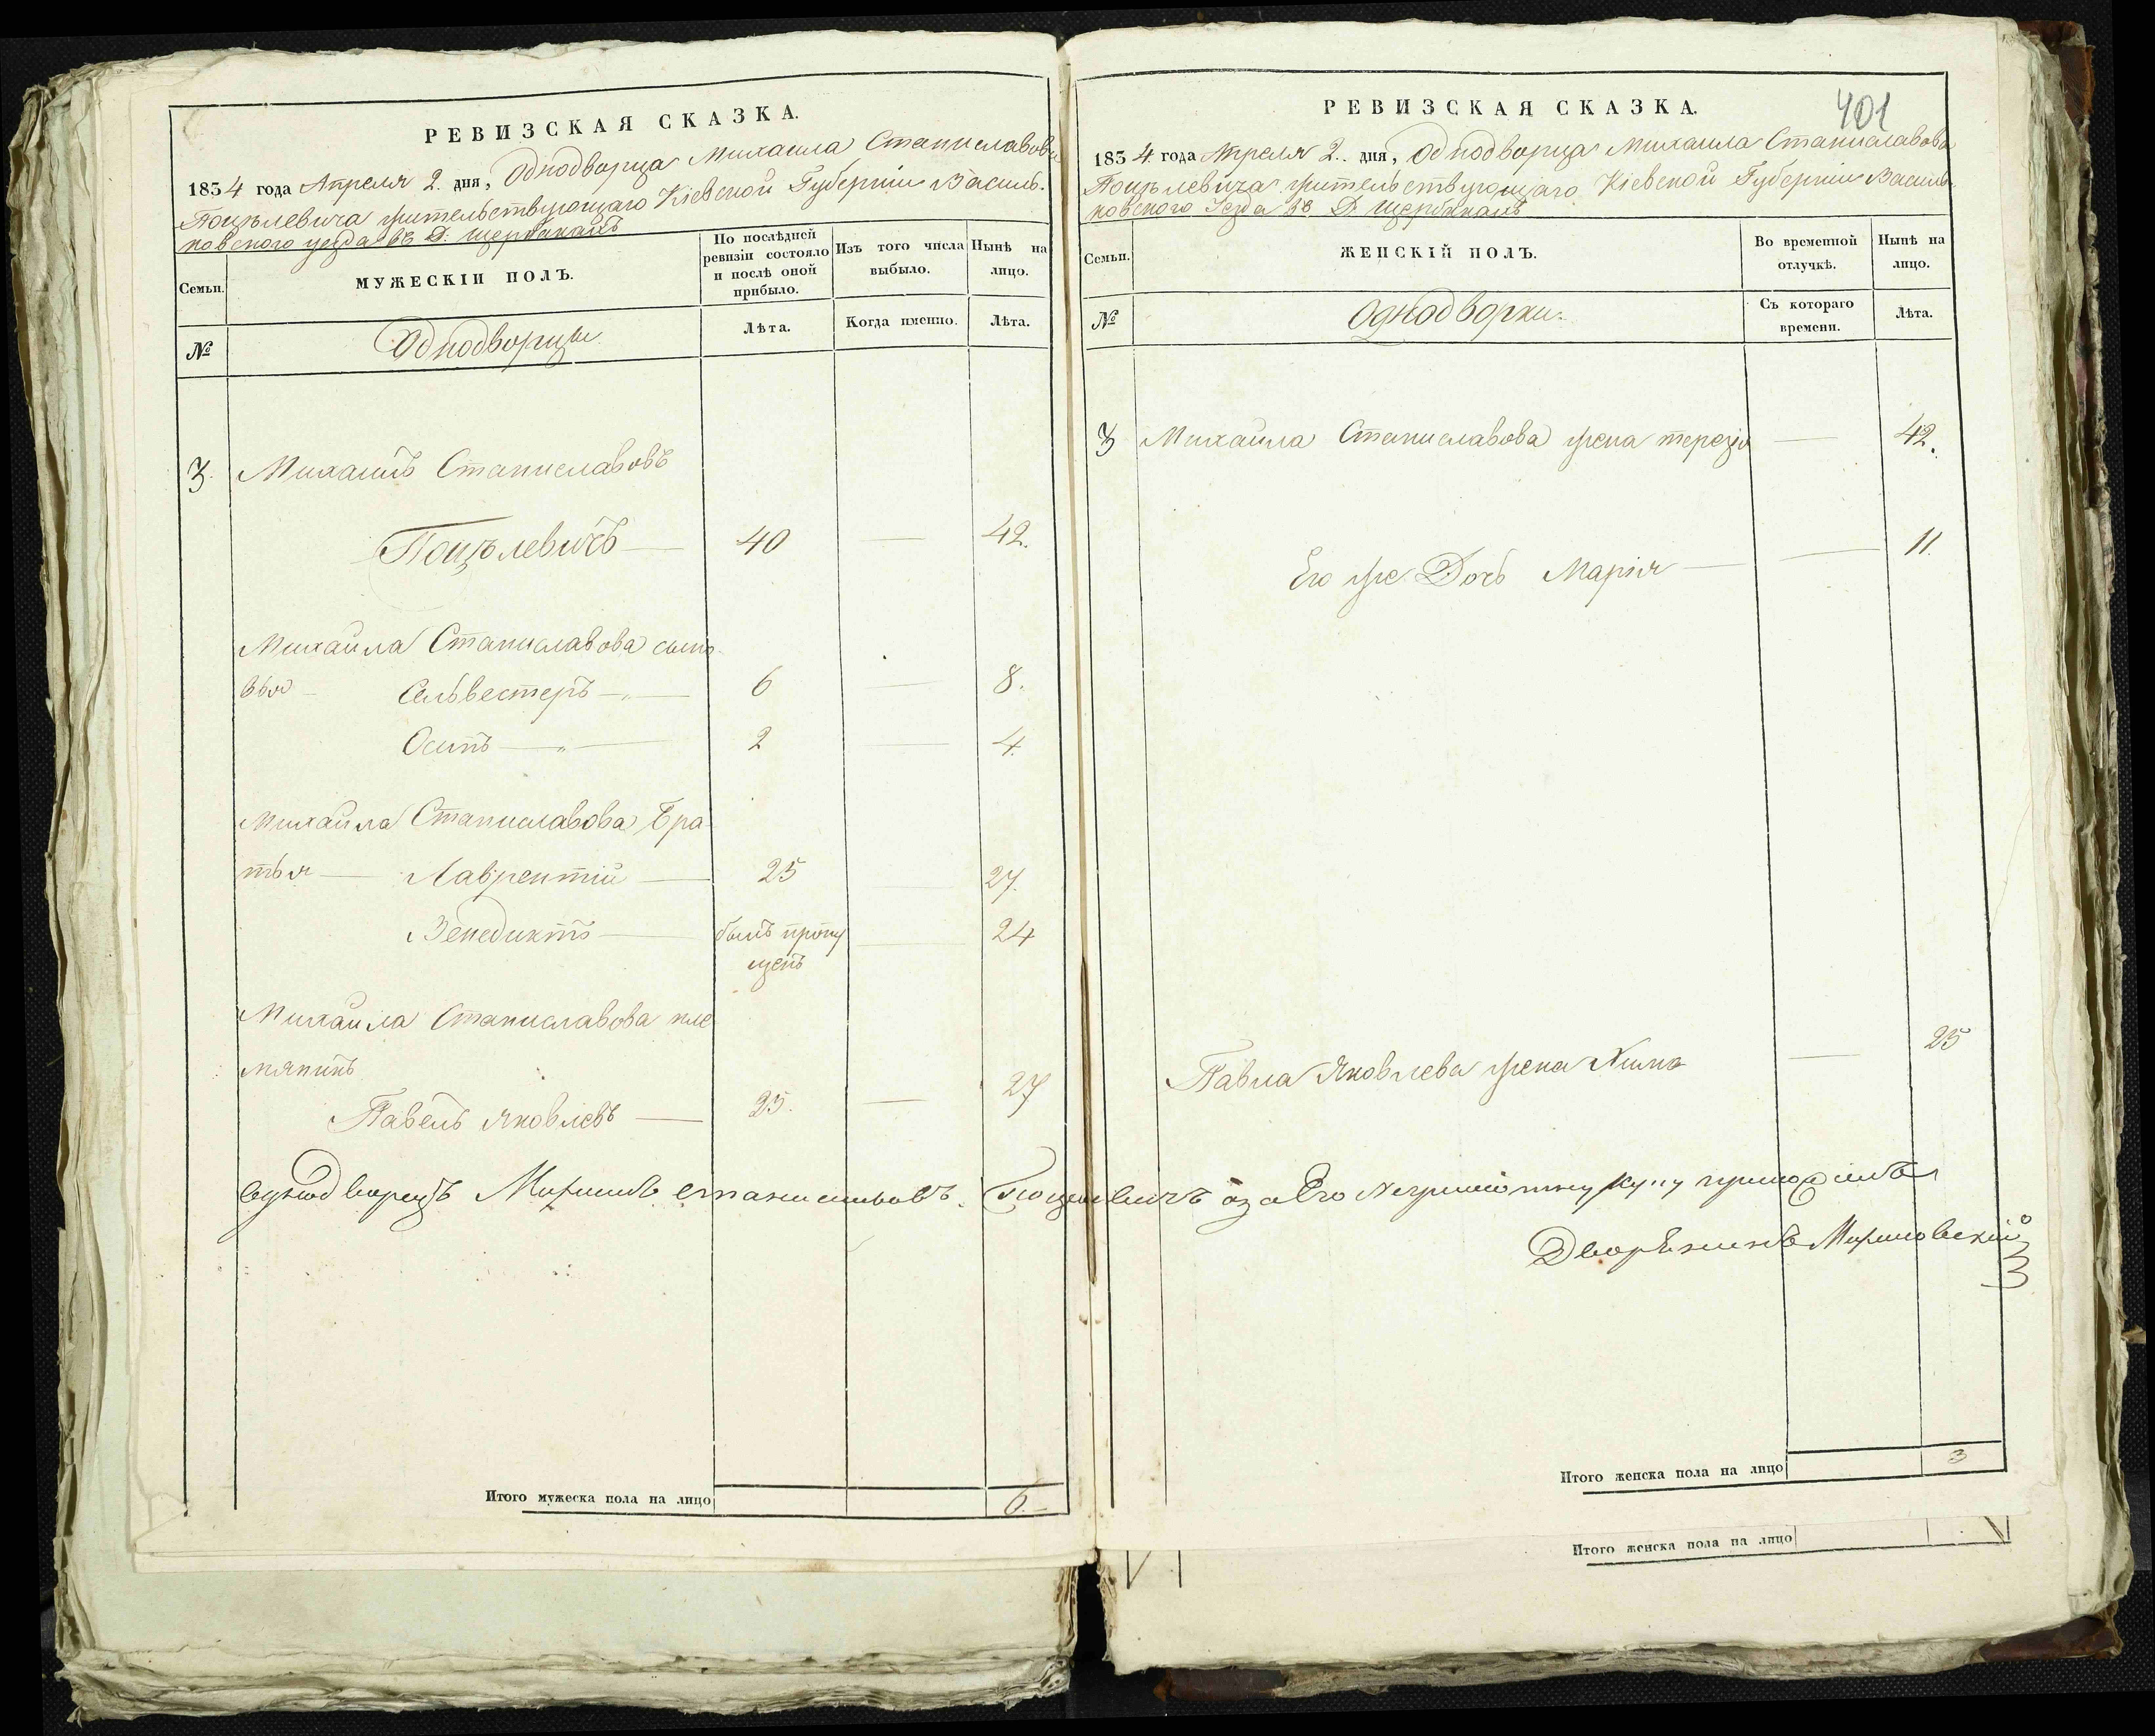 РЕВИЗСКАЯ СКАЗКА.
1834 года Апреля 2. дня, Однодворца Михаила Станиславова
Поцѣлевича жительствующаго Кіевской Губерніи Василь-
ковского уезда въ Д: Щербакахъ
Семьи.
МУЖЕСКІЙ ПОЛЪ.
По послѣдней ревизіи состояло и послѣ оной прибыло.
Изъ того числа выбыло.
Нынѣ на лицо.
№
Однодворцы
Лѣта.
Когда именно.
Лѣта.
3. Михаилъ Станиславовъ
Поцѣлевичъ — 40 — 42.
Михаила Станиславова сыно-
вья — Сельвестеръ — „ — 6 — 8.
Осипъ — „ — 2 — 4.
Михаила Станиславова Бра
тья — Лаврентій — 25 — 27.
Венедиктъ — былъ пропу — 24
щенъ
Михаила Станиславова пле
мяникъ
Павелъ Яковлевъ — 25. — 27
Итого мужеска пола на лицо 6. —
401
РЕВИЗСКАЯ СКАЗКА.
1834 года Апреля 2.. дня, Однодворца Михаила Станиславова
Поцѣлевича жительствующаго Кіевской Губерніи Василь-
ковского Уезда въ Д: Щербакахъ
Семьи.
ЖЕНСКІЙ ПОЛЪ.
Во временной отлучкѣ.
Нынѣ на лицо.
№
Однодворки.
Съ котораго времени.
Лѣта.
3 Михаила Станиславова жена терезія — 42.
Его же Дочь Марія — — 11.
Павла Яковлева жена — 25
однодворецъ Михаилъ станиславовъ Поцелевичъ аза Его руку приложилъ
Дворянинъ
Итого женска пола на лицо 3
Итого женска пола на лицо